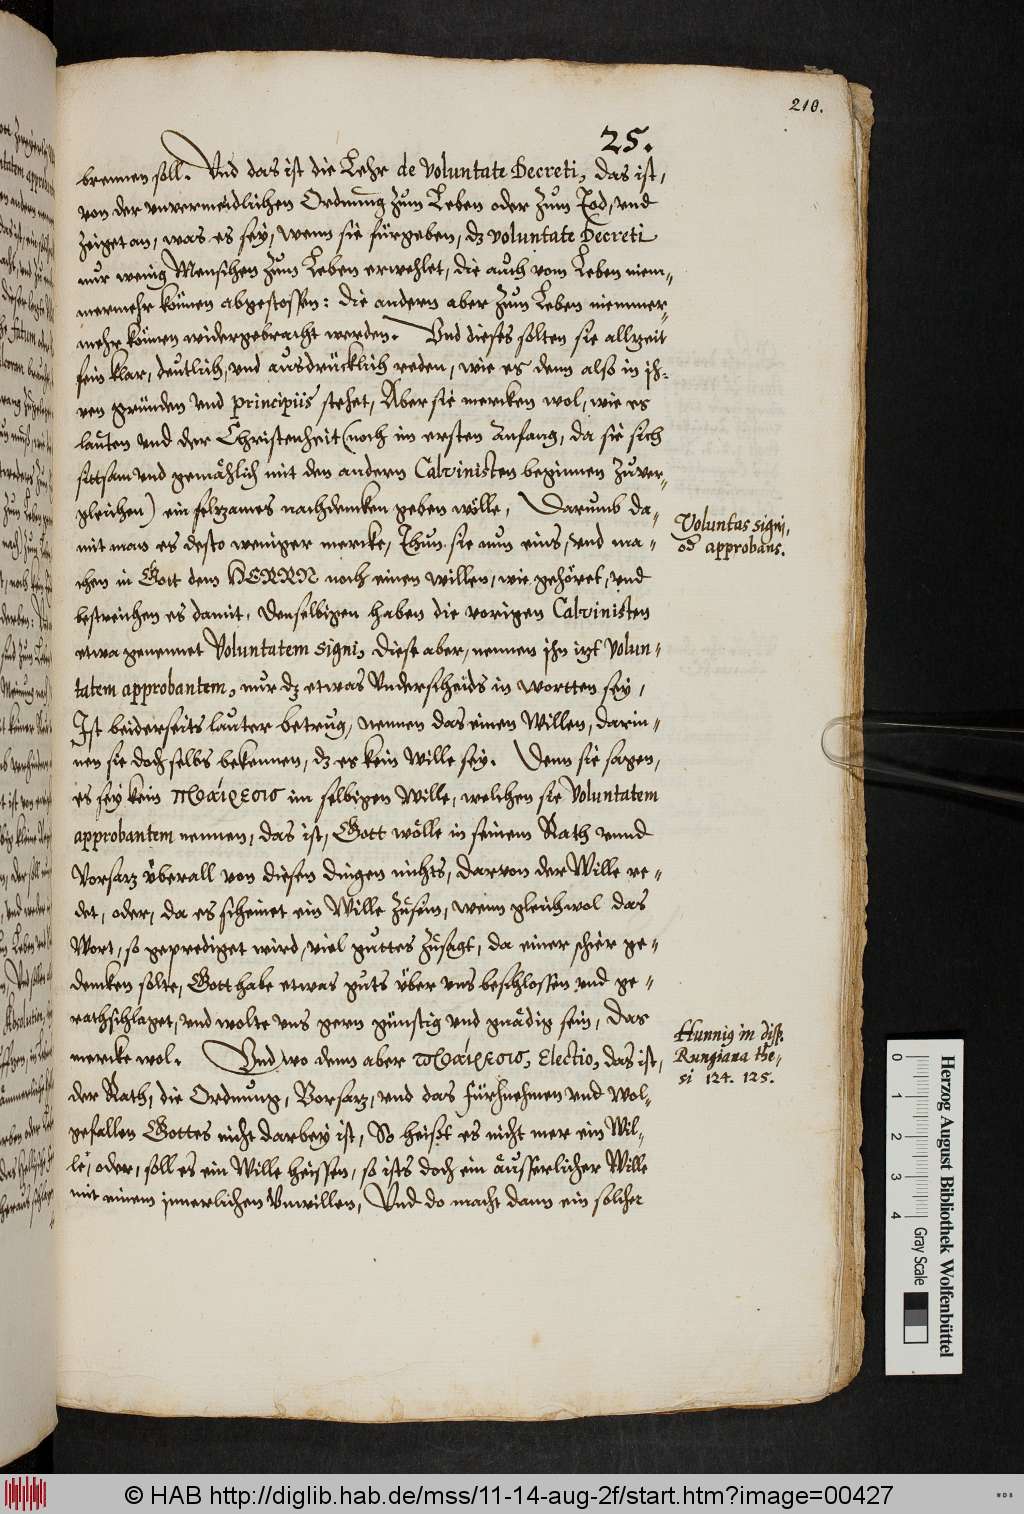 210.
25.
brennen soll. Vnd das ist die Lehr de Voluntate Decreti, das ist,
von der vnvermeidlichen Ordnung zum Leben oder zum Tod, vnd
zeiget an, was es sey, wenn sie fürgeben, dz voluntate Decreti
nur wenig Menschen zum Leben erwehlet, die auch vom Leben niem-
mermehr können abgestossen: die andern aber zum Leben niemmer-
mehr können widergebracht werden. Vnd dieses solten sie allzeit
fein klar, deutlich, vnd ausdrücklich reden, wie es denn also in ih-
ren gründen vnd principiis stehet, Aber sie mercken wol, wie es
lauten vnd der Christenheit (noch im ersten Anfang, da sie sich
sittsam vnd gemählich mit den andern Calvinisten beginnen zuver-
gleichen) ein seltzames nachdencken geben wölle, Darumb da-
mit man es desto weniger mercke, Thun sie nun eins, vnd ma-
chen in Gott dem HERRN noch einen willen, wie gehöret, vnd
bestreichen es damit. Denselbigen haben die vorigen Calvinisten
etwa genennet Voluntatem signi, diese aber, nennen ihn itzt volun-
tatem approbantem, nur dz etwas Vnderscheids in wortten sey,
Ist beiderseits lauter betrug, nennen das einen Willen, darin-
nen sie doch selbs bekennen, dz es kein Wille sey. Denn sie sagen,
es sey kein προαίρεσις im selbigen Wille, welchen sie Voluntatem
approbantem nennen, das ist, Gott wölle in seinem Rath vnnd
Vorsatz überall von diesen dingen nichts, darvon der Wille re-
det, oder, da es scheinet ein Wille zusein, wenn gleichwol das
Wort, so geprediget wird, viel guttes zusagt, da einer schier ge-
dencken solte, Gott habe etwas guts über vns beschlossen vnd ge-
rathschlaget, vnd wolte vns gern günstig vnd gnädig sein, das
mercke wol. Vnd wo denn aber προαίρεσις, Electio, das ist,
der Rath, die Ordnung, Vorsatz, vnd das fürhnehmen vnd Wol-
gefallen Gottes nicht darbey ist, So heißt es nicht mer ein Wil-
le, oder, soll es ein Wille heissen, so ists doch ein äusserlicher Wille
mit einem innerlichen Vnwillen, Vnd do macht dann ein solcher
Voluntas signi,
approbans.
Hunnig in disp.
Rungiana the-
si 124. 125.
Herzog August Bibliothek Wolfenbüttel
0 1 2 3 4 Gray Scale
© HAB http://diglib.hab.de/mss/11-14-aug-2f/start.htm?image=00427